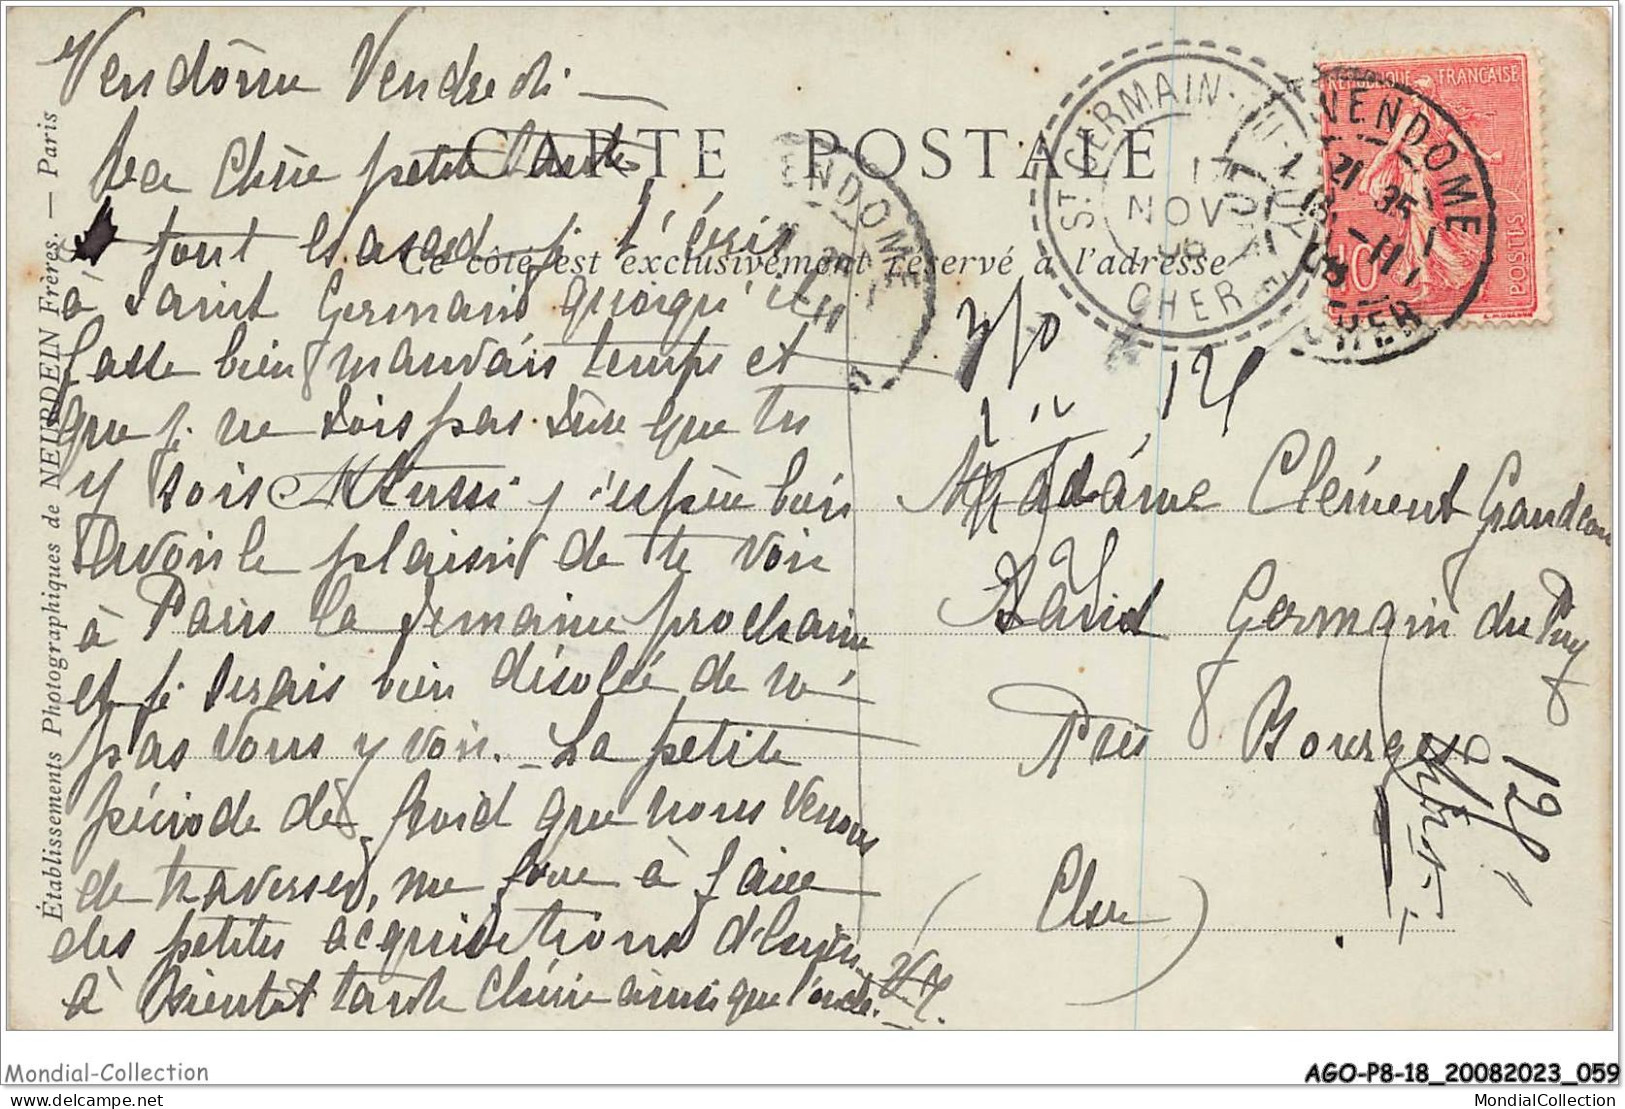 Vendôme Vendredi —
CARTE POSTALE
Ma chère petite tante
à tout hasard je t'écris
Ce côté est exclusivement réservé à l'adresse
à Saint Germain quoiqu'il
fasse bien mauvais temps et
que je ne sois pas sûre que tu
y sois Aussi j'espère bien
avoir le plaisir de te voir
à Paris la semaine prochaine
et je serais bien désolée de ne
pas vous y voir. — La petite
période de froid que nous venons
de traverser, me force à faire
des petites acquisitions d'hiver
à Bientôt tante chérie ainsi que l'oncle.
Madame Clément Grandeau
Saint Germain du Puy
Près Bourges
(Cher)
Établissements Photographiques de NEURDEIN Frères. — Paris
ST GERMAIN-DU-PUY
1
NOV
CHER
VENDOME
21 35
-11
CHER
ENDOME
11
RÉPUBLIQUE FRANÇAISE
10
POSTES
Mondial-Collection
AGO-P8-18_20082023_059
delcampe.net
MondialCollection